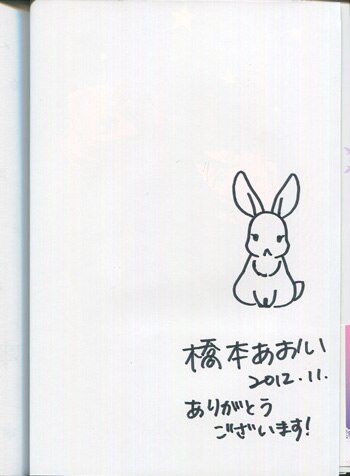 橋本あおい
2012.11.
ありがとう
ございます!